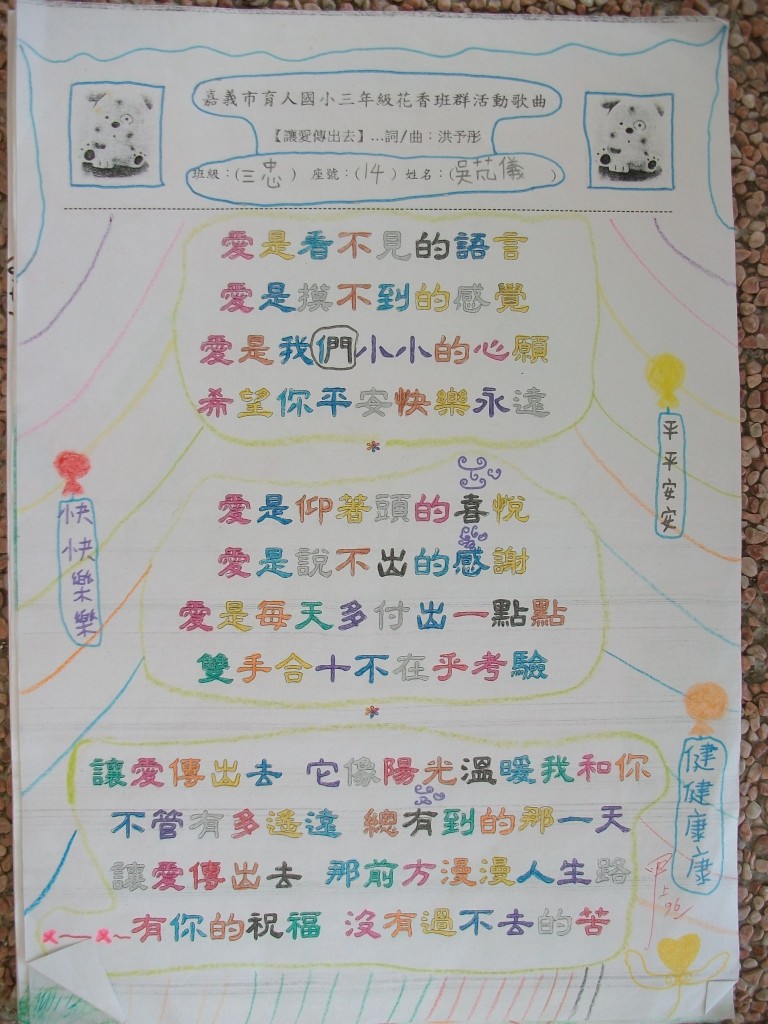 嘉義市育人國小三年級花香班群活動歌曲
【讓愛傳出去】…詞/曲：洪予彤
班級：(三忠) 座號：(14) 姓名：(吳芃儀)
愛是看不見的語言
愛是摸不到的感覺
愛是我們小小的心願
希望你平安快樂永遠
*
平平安安
愛是仰著頭的喜悅
愛是說不出的感謝
愛是每天多付出一點點
雙手合十不在乎考驗
*
快快樂樂
讓愛傳出去 它像陽光溫暖我和你
不管有多遙遠 總有到的那一天
讓愛傳出去 那前方漫漫人生路
有你的祝福 沒有過不去的苦
健健康康
甲上
96